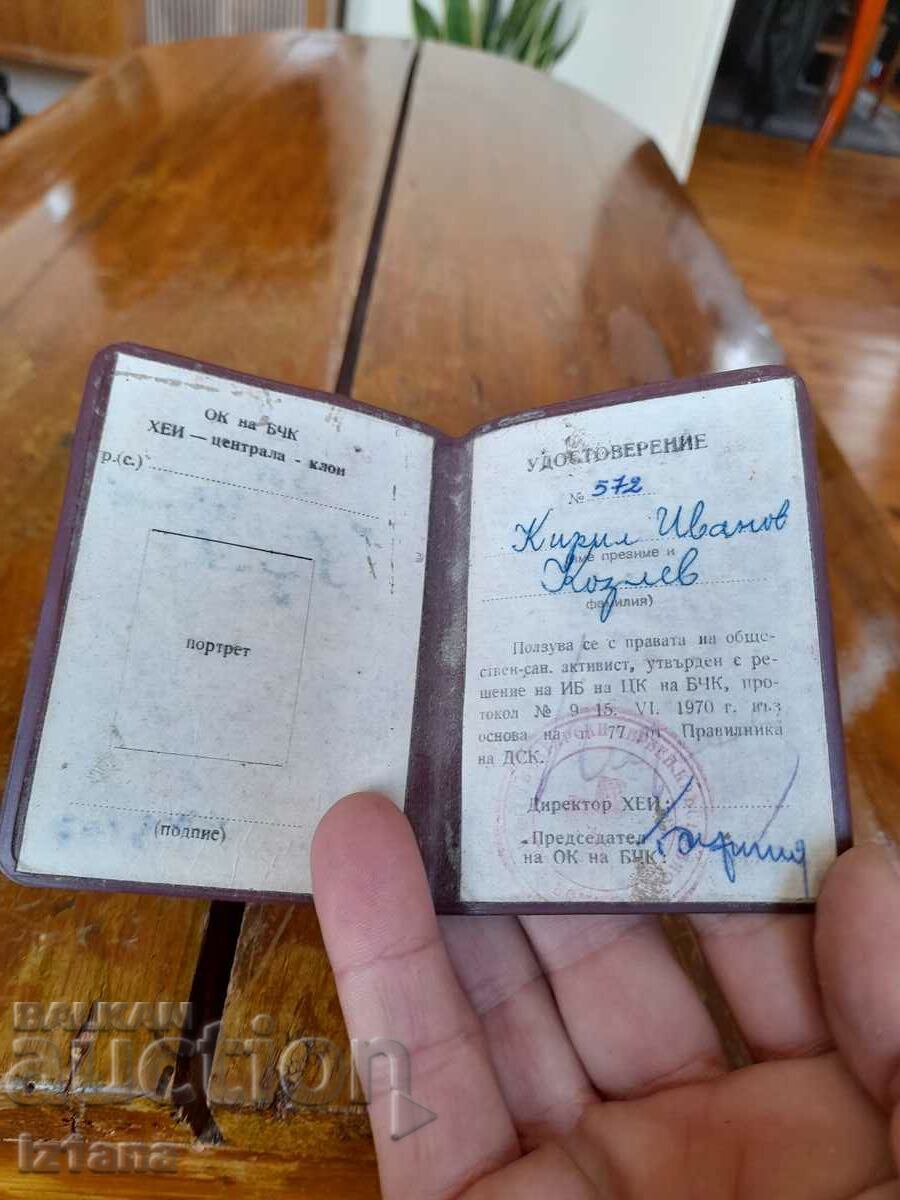 ОК на БЧК
ХЕИ — централа - клон
р.(с.)
портрет
(подпис)
УДОСТОВЕРЕНИЕ
№ 572
Кирил Иванов
име презиме и
Козлев
фамилия)
Ползува се с правата на общес-
ствен-сан. активист, утвърден с ре-
шение на ИБ на ЦК на БЧК, про-
токол № 9 15. VI. 1970 г. въз
основа на 77 от Правилника
на ДСК.
Директор ХЕИ:
Председател
на ОК на БЧК:
BALKAN
auction
iztana